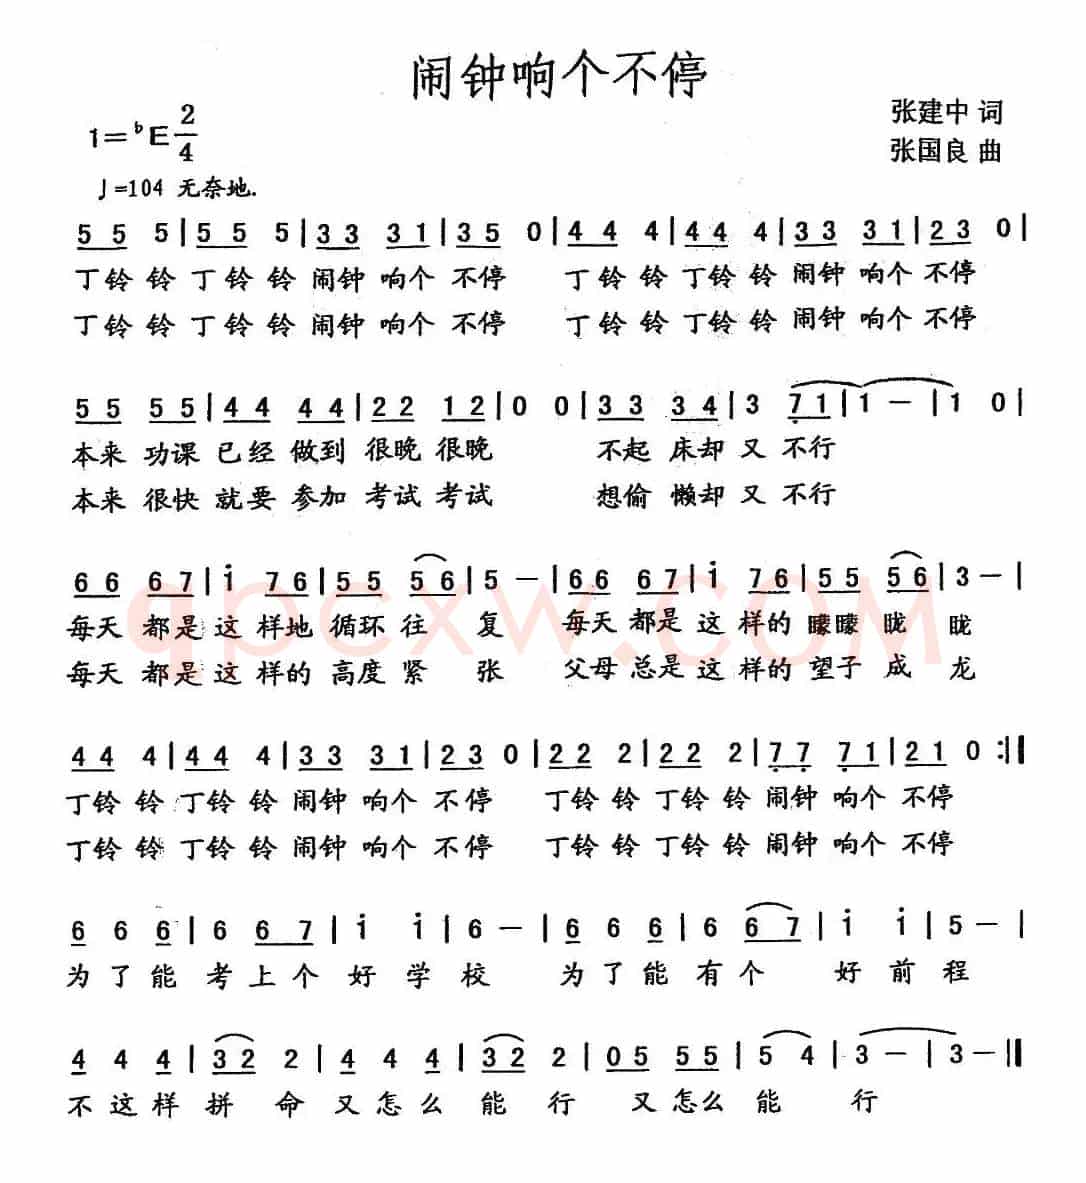 闹钟响个不停
张建中 词
1=♭E 2/4
张国良 曲
♩=104 无奈地.
5 5 5 | 5 5 5 | 3 3 3 1 | 3 5 0 | 4 4 4 | 4 4 4 | 3 3 3 1 | 2 3 0 |
丁铃 铃 丁铃 铃 闹钟 响个 不停 丁铃 铃 丁铃 铃 闹钟 响个 不停
丁铃 铃 丁铃 铃 闹钟 响个 不停 丁铃 铃 丁铃 铃 闹钟 响个 不停
5 5 5 5 | 4 4 4 4 | 2 2 1 2 | 0 0 | 3 3 3 4 | 3 7̣ 1 | 1 — | 1 0 |
本来 功课 已经 做到 很晚 很晚 不起 床却 又 不行
本来 很快 就要 参加 考试 考试 想偷 懒却 又 不行
6 6 6 7 | i 7 6 | 5 5 5 6 | 5 — | 6 6 6 7 | i 7 6 | 5 5 5 6 | 3 — |
每天 都是 这 样地 循环 往 复 每天 都是 这 样的 矇矇 眬 眬
每天 都是 这 样的 高度 紧 张 父母 总是 这 样的 望子 成 龙
qpcxw.COM
4 4 4 | 4 4 4 | 3 3 3 1 | 2 3 0 | 2 2 2 | 2 2 2 | 7̣ 7̣ 7̣ 1 | 2 1 0 :‖
丁铃 铃 丁铃 铃 闹钟 响个 不停 丁铃 铃 丁铃 铃 闹钟 响个 不停
丁铃 铃 丁铃 铃 闹钟 响个 不停 丁铃 铃 丁铃 铃 闹钟 响个 不停
6 6 6 | 6 6 7 | i i | 6 — | 6 6 6 | 6 6 7 | i i | 5 — |
为 了 能 考 上 个 好 学 校 为 了 能 有 个 好 前 程
4 4 4 | 3 2 2 | 4 4 4 | 3 2 2 | 0 5 5 5 | 5 4 | 3 — | 3 — ‖
不 这 样 拼 命 又 怎 么 能 行 又 怎么 能 行